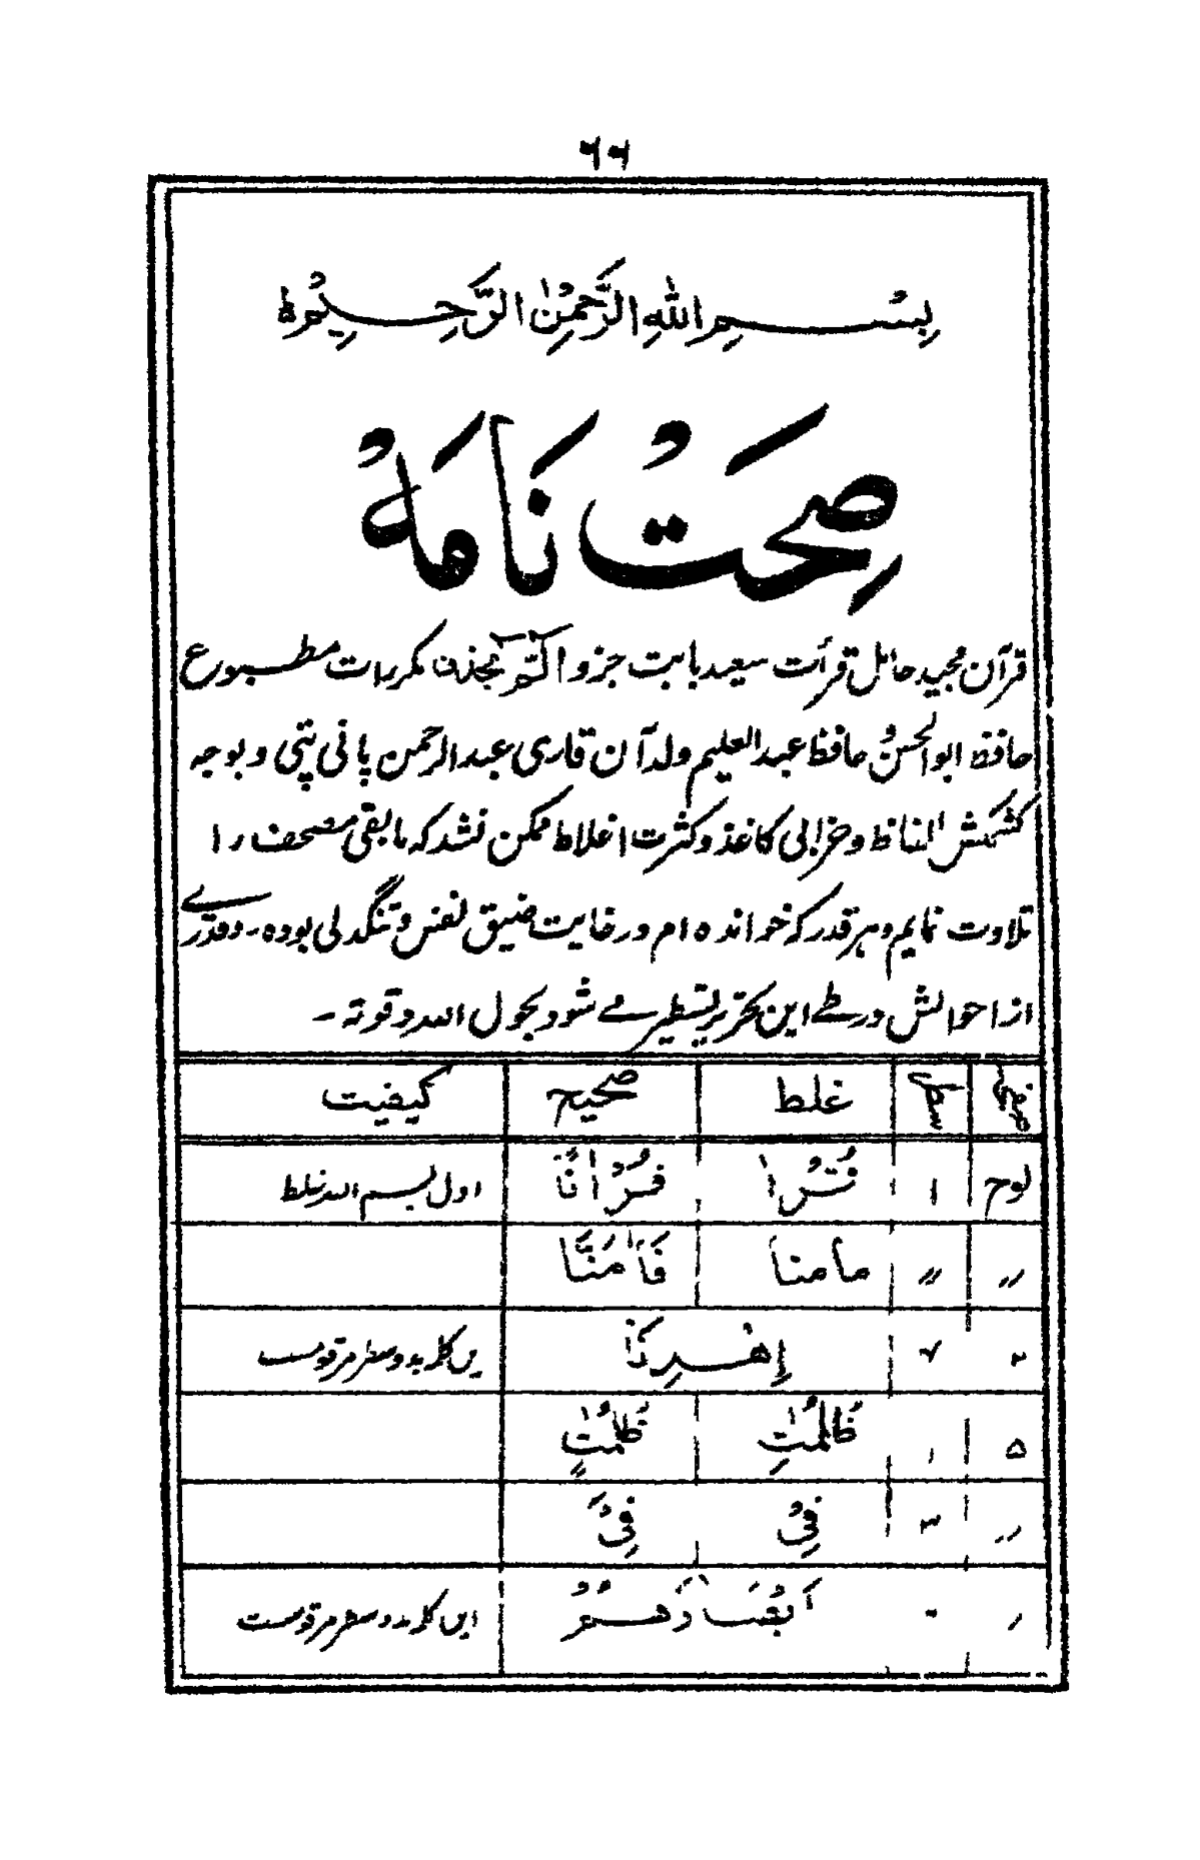 ۶۶
بِسْمِ اللهِ الرَّحْمٰنِ الرَّحِيْمِ ط
صِحَتْ نَامَهْ
قرآن مجید حائل قرأت سعید بابت جزو الٓمٓ بحذف مکررات مطبوع
حافظ ابوالحسن و حافظ عبدالعلیم ولد آن قاری عبدالرحمن پانی پتی و بوجہ
کشمکش الفاظ و خرابی کاغذ و کثرت اغلاط ممکن نشد کہ مابقی مصحف را
تلاوت نمایم و ہر قدر کہ خواندہ ام در غایت ضیق نفس و تنگدلی بودہ ۔ و قدرے
از احوالش در طے این تحریر تسطیر مے شود بحول اللہ و قوتہ ۔
صفحہ سطر غلط صحیح کیفیت
لوح ۱ قُرْاٰ قُرْاٰنًا اول بسم اللہ غلط
〃 〃 مامنا فَاٰمَنَّا
۲ ۷ اِهْدِنَا یں کلمہ بدو سطر مرقوست
۵ ۱ ظُلُمٰتِ ظُلُمٰتٍ
〃 ۳ فِیْ فِیْٓ
اَبْصَارَهُمْ ایں کلمہ بدو سطر مرقوست